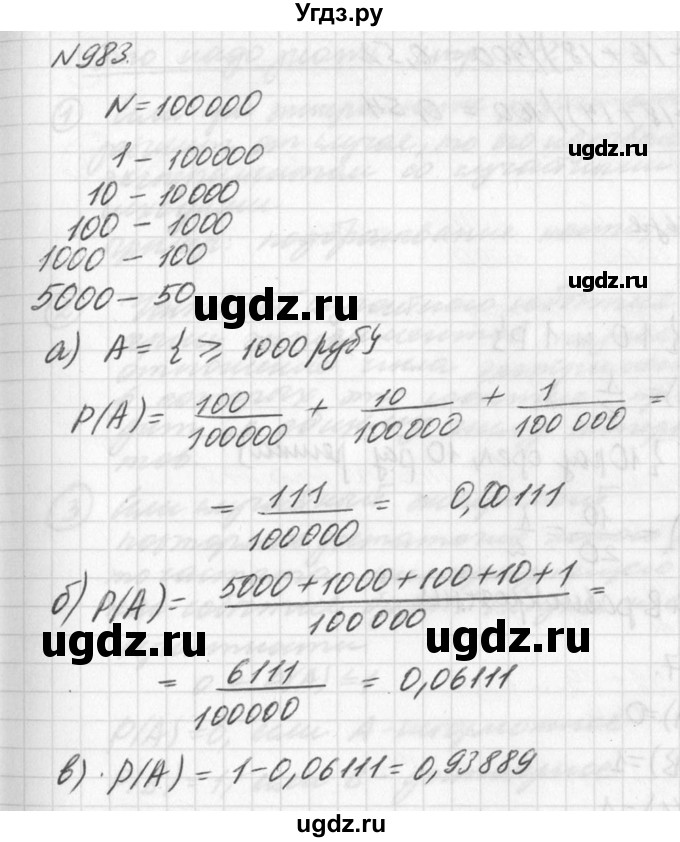 Угдз.ру
№983.
N = 100000
1 - 100000
ugdz.ru
10 - 10000
100 - 1000
1000 - 100
ugdz.ru
5000 - 50
ugdz.ru
ugdz.ru
а) A = { ≥ 1000 руб}
P(A) = 100/100000 + 10/100000 + 1/100 000 =
= 111/100000 = 0,00111
б) P(A) = 5000+1000+100+10+1/100 000 =
ugdz.ru
ugdz.ru
= 6111/100000 = 0,06111
в) P(A) = 1-0,06111 = 0,93889
ugdz.ru
ugdz.ru